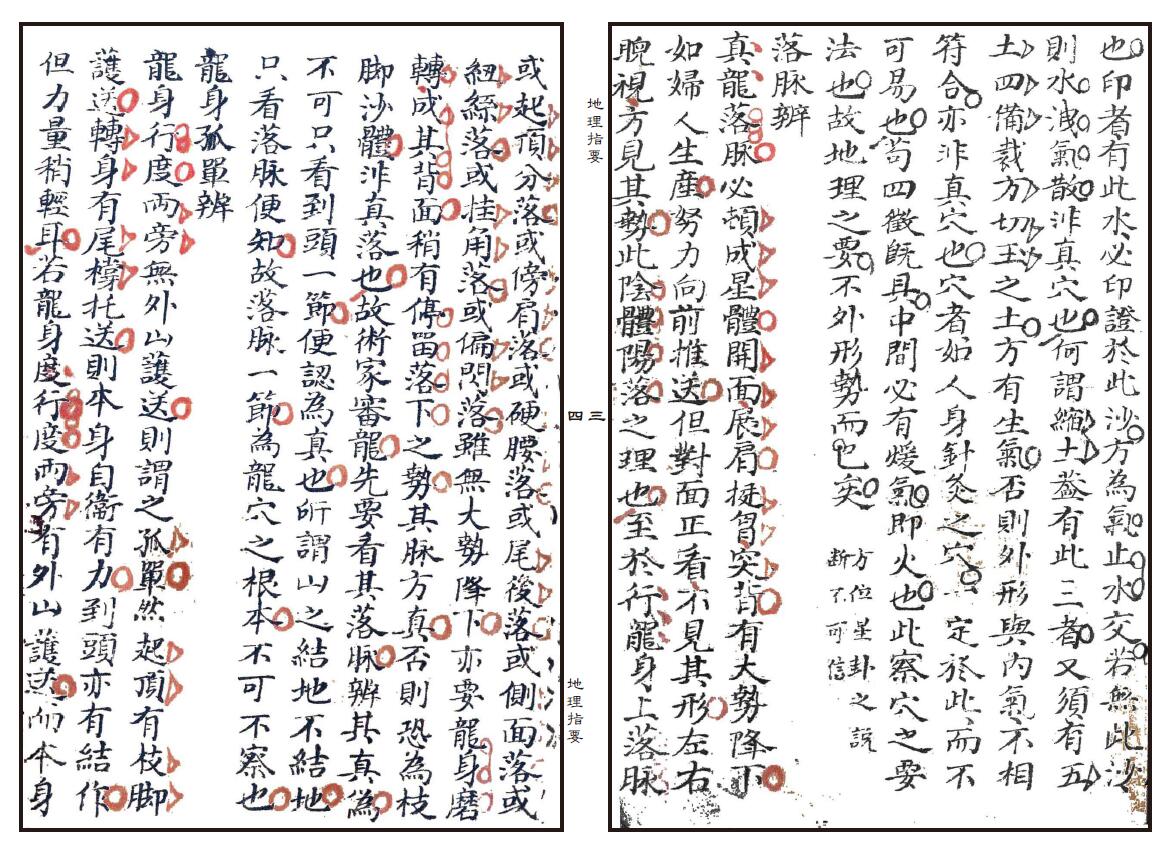 也印者有此水必印證於此沙方為氣止水交若無此沙
則水洩氣散非真穴也何謂縮土蓋有此三者又須有五
土四備裁方切玉之土方有生氣否則外形與內氣不相
符合亦非真穴也穴者如人身針灸之穴一定於此而不
可易也苟四徵既具中間必有煖氣即火也此察穴之要
法也故地理之要不外形勢而已矣 方位星卦之說斷不可信
落脉辨
真龍落脉必頓成星體開面展肩挺胷突背有大勢降下
如婦人生產努力向前推送但對面正看不見其形左右
睨視方見其勢此陰體陽落之理也至於行龍身上落脉
地理指要
三四
或起頂分落或傍肩落或硬腰落或尾後落或側面落或
紐絲落或挂角落或偏閃落雖無大勢降下亦要龍身磨
轉成其背面稍有停留落下之勢其脉方真否則恐為枝
脚沙體非真落也故術家審龍先要看其落脉辨其真為
不可只看到頭一節便認為真也所謂山之結地不結地
只看落脉便知故落脉一節為龍穴之根本不可不察也
龍身孤單辨
龍身行度兩旁無外山護送則謂之孤單然起頂有枝脚
護送轉身有尾橕托送則本身自衞有力到頭亦有結作
但力量稍輕耳若龍身度行度兩旁有外山護送而本身
地理指要